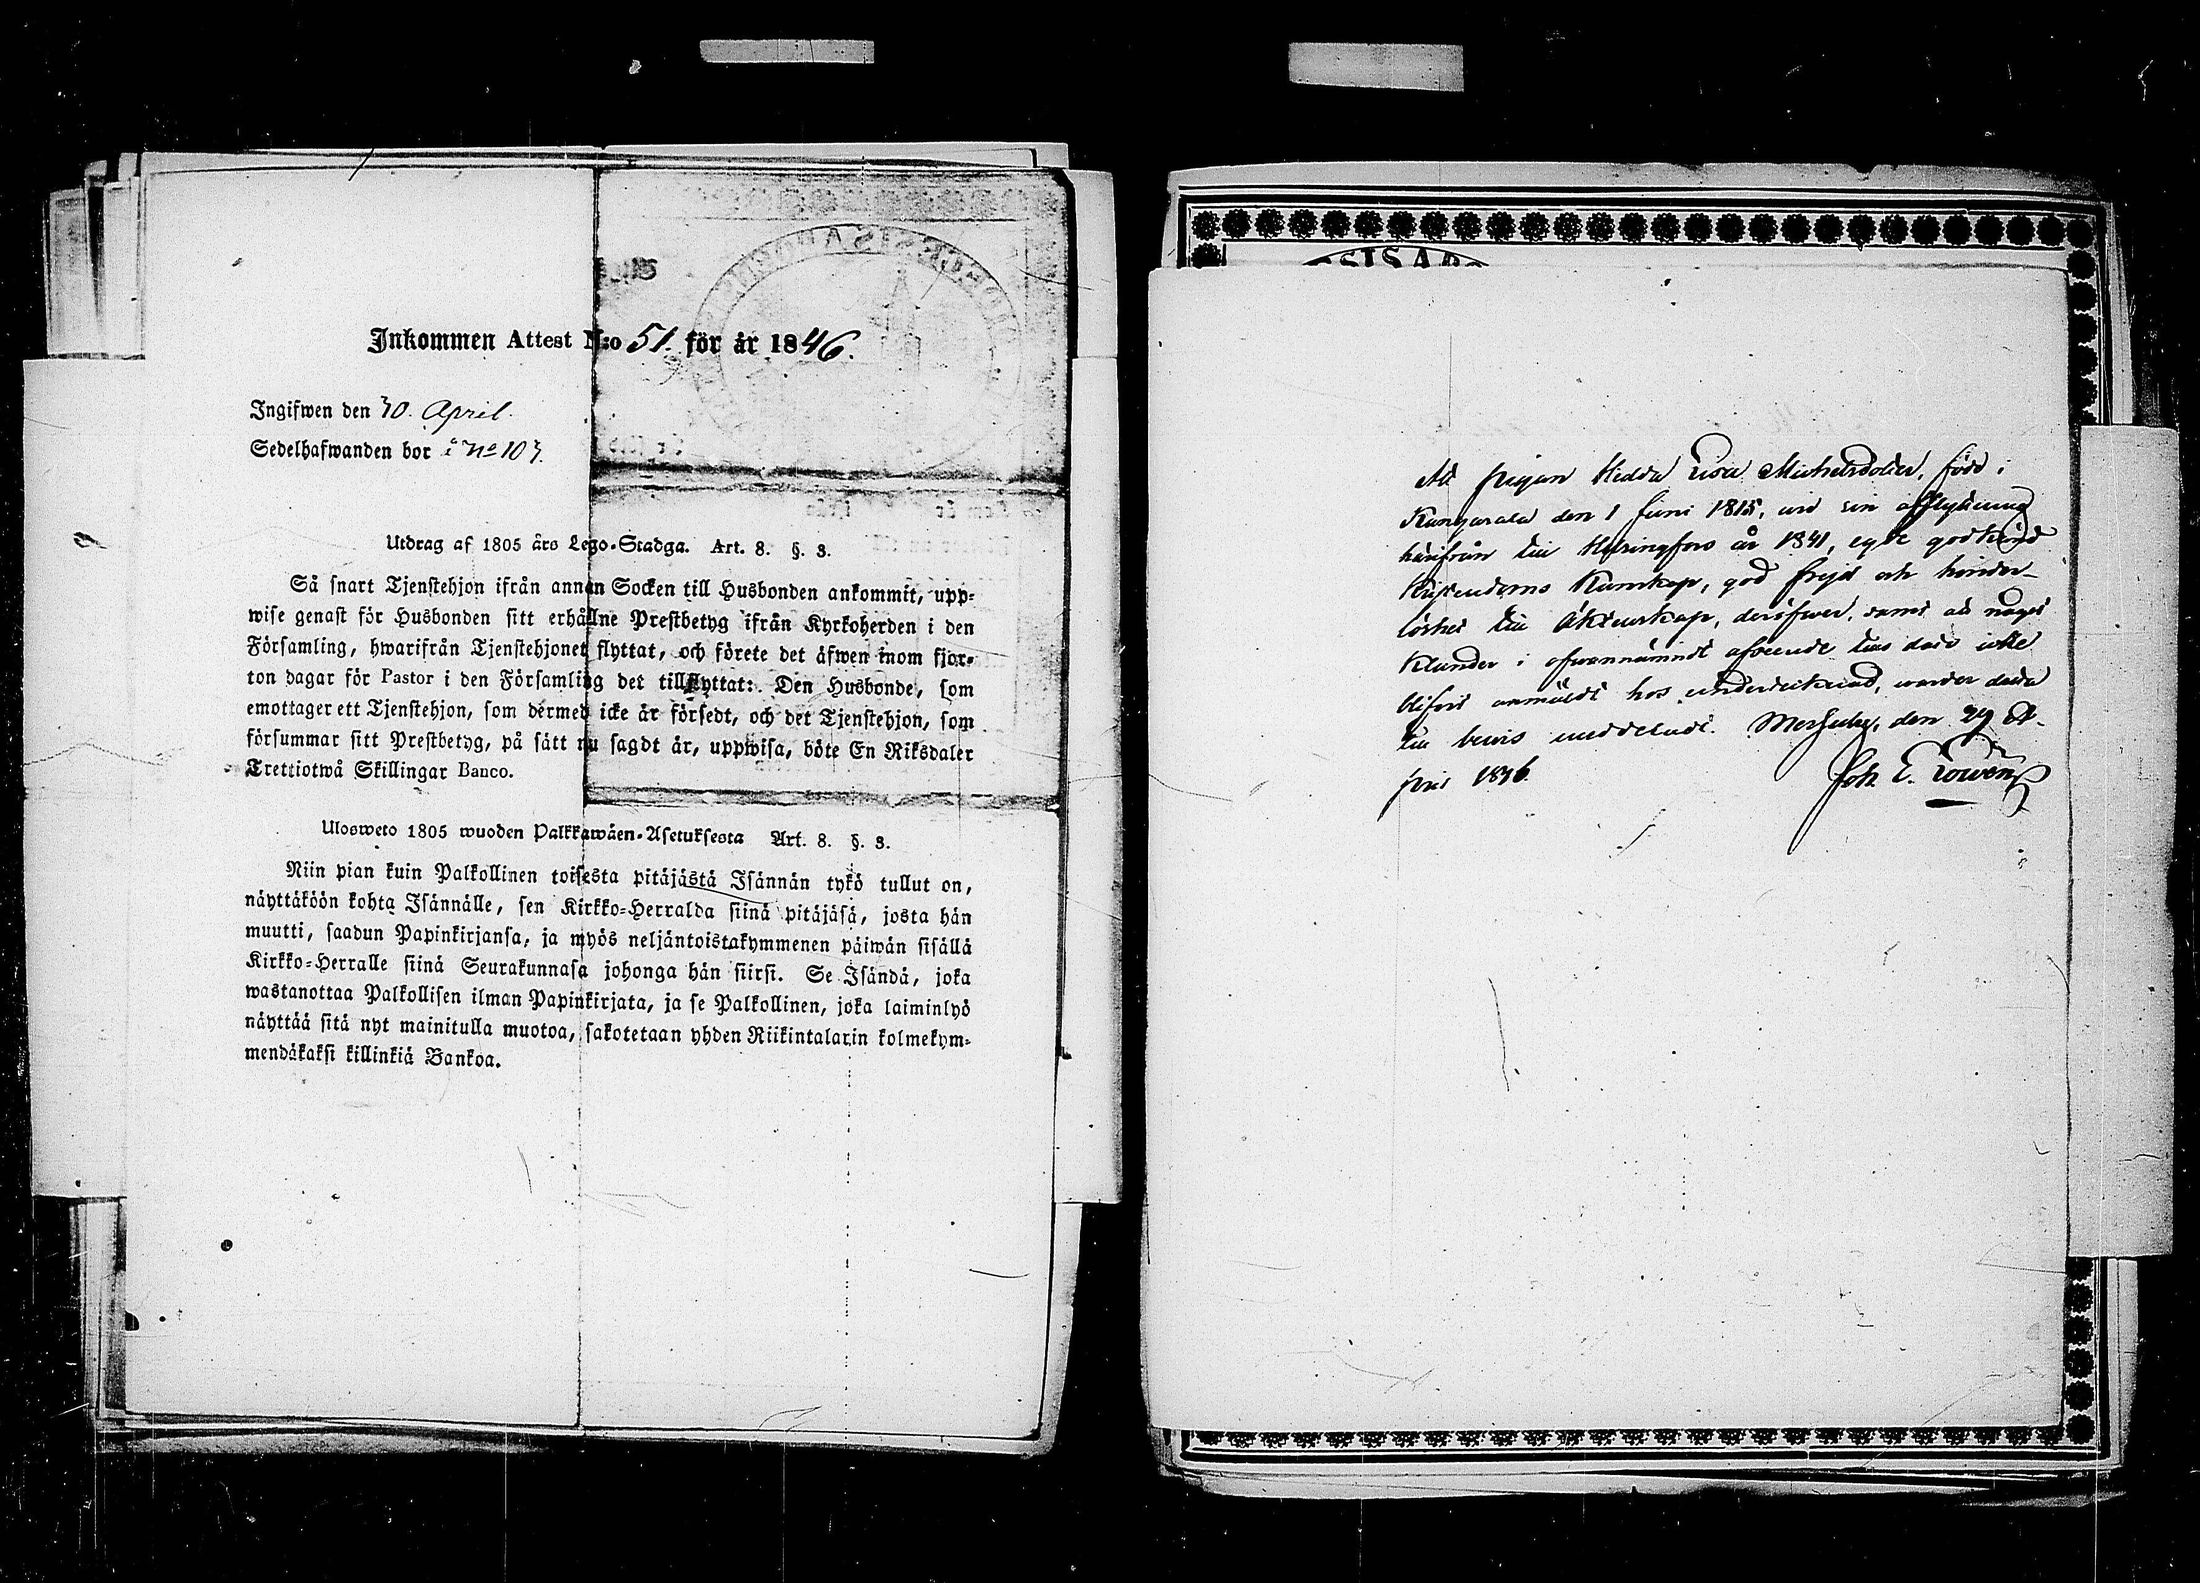 Inkommen Attest N:o 51. för år 1846.
Ingifwen den 30. April.
Sedelhafwanden bor i No 103.
Utdrag af 1805 års Lego-Stadga. Art. 8. §. 3.
Så snart Tjenstehjon ifrån annan Socken till Husbonden ankommit, upp-
wise genast för Husbonden sitt erhållne Prestbetyg ifrån Kyrkoherden i den
Församling, hwarifrån Tjenstehjonet flyttat, och förete det äfwen inom fjor-
ton dagar för Pastor i den Församling det tillflyttat: Den Husbonde, som
emottager ett Tjenstehjon, som dermed icke är försedt, och det Tjenstehjon, som
försummar sitt Prestbetyg, på sätt nu sagdt är, uppwisa, böte En Riksdaler
Trettiotwå Skillingar Banco.
Ulosweto 1805 wuoden Palkkawäen-Asetuksesta Art. 8. §. 3.
Niin pian kuin Palkollinen toisesta pitäjästä Isännän tykö tullut on,
näyttäköön kohta Isännälle, sen Kirkko-Herralda siinä pitäjäsä, josta hän
muutti, saadun Papinkirjansa, ja myös neljäntoistakymmenen päiwän sisällä
Kirkko-Herralle siinä Seurakunnasa johonga hän siirsi. Se Isändä, joka
wastanottaa Palkollisen ilman Papinkirjata, ja se Palkollinen, joka laiminlyö
näyttää sitä nyt mainitulla muotoa, sakotetaan yhden Riikintalarin kolmekym-
mendäkaksi killinkiä Bankoa.
Att pigan Hedda Lisa Michelsdotter, född i
Kangasala den 1 Juni 1815, wid sin afflyttning
härifrån till Helsingfors år 1841, egde godkänd
Kristendoms Kunskap, god frejd och hinder-
löshet till Äktenskap, deröfwer, samt att något
Klander i ofwannämndt afseende tills dato icke
blifwit anmäldt hos undertecknad, warder detta
till bewis meddeladt. Messuby, den 29 A-
pril 1846.
Joh. E. Lowén